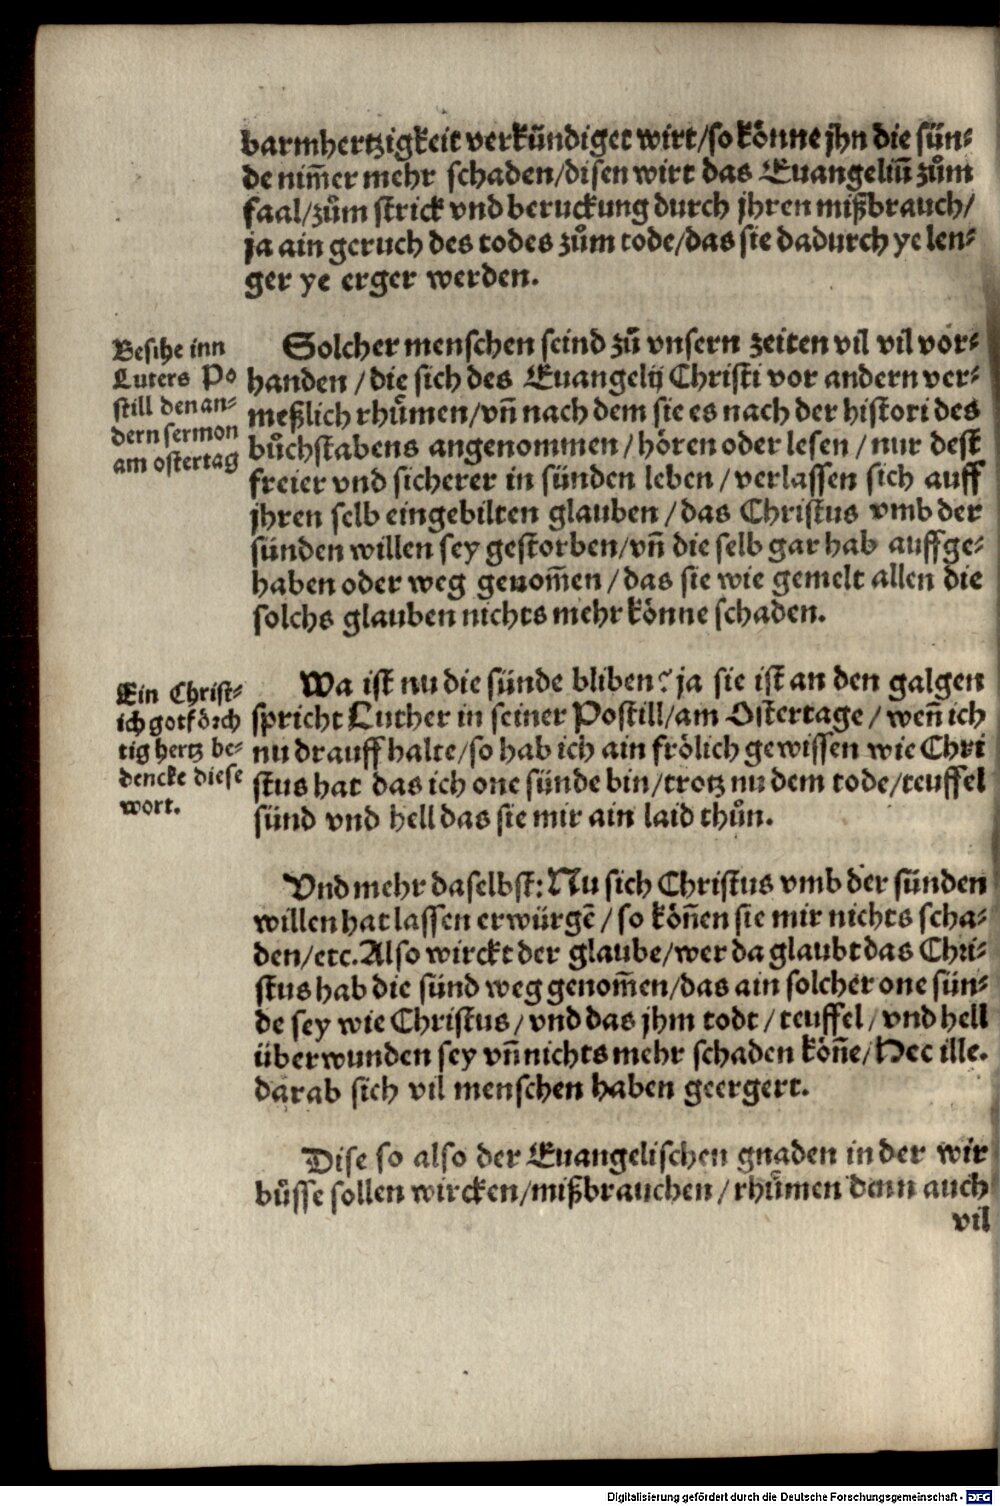 barmhertzigkeit verkündiget wirt/so könne jhn die sün⸗
de nim̃er mehr schaden/disen wirt das Euangeliũ zům
faal/zům strick vnd beruckung durch jhren mißbrauch/
ja ain geruch des todes zům tode/das sie dadurch ye len⸗
ger ye erger werden.
Besihe inn
Luters Po
still den an⸗
dern sermon
am ostertag
Solcher menschen seind zů vnsern zeiten vil vil vor⸗
handen/die sich des Euangelij Christi vor andern ver⸗
meßlich rhůmen/vñ nach dem sie es nach der histori des
bůchstabens angenommen/hören oder lesen/nur dest
freier vnd sicherer in sünden leben/verlassen sich auff
jhren selb eingebilten glauben/das Christus vmb der
sünden willen sey gestorben/vñ die selb gar hab auffge⸗
haben oder weg genom̃en/das sie wie gemelt allen die
solchs glauben nichts mehr könne schaden.
Ein Christ⸗
ich gotförch
tig hertz be⸗
dencke diese
wort.
Wa ist nu die sünde bliben? ja sie ist an den galgen
spricht Luther in seiner Postill/am Ostertage/weñ ich
nu drauff halte/so hab ich ain frölich gewissen wie Chri
stus hat das ich one sünde bin/trotz nu dem tode/teuffel
sünd vnd hell das sie mir ain laid thůn.
Vnd mehr daselbst: Nu sich Christus vmb der sünden
willen hat lassen erwürgẽ/so köñen sie mir nichts scha⸗
den/etc. Also wirckt der glaube/wer da glaubt das Chri⸗
stus hab die sünd weg genom̃en/das ain solcher one sün⸗
de sey wie Christus/vnd das jhm todt/teuffel/vnd hell
überwunden sey vñ nichts mehr schaden köñe/Hec ille.
darab sich vil menschen haben geergert.
Dise so also der Euangelischen gnaden in der wir
bůsse sollen wircken/mißbrauchen/rhůmen denn auch
vil
Digitalisierung gefördert durch die Deutsche Forschungsgemeinschaft - DFG